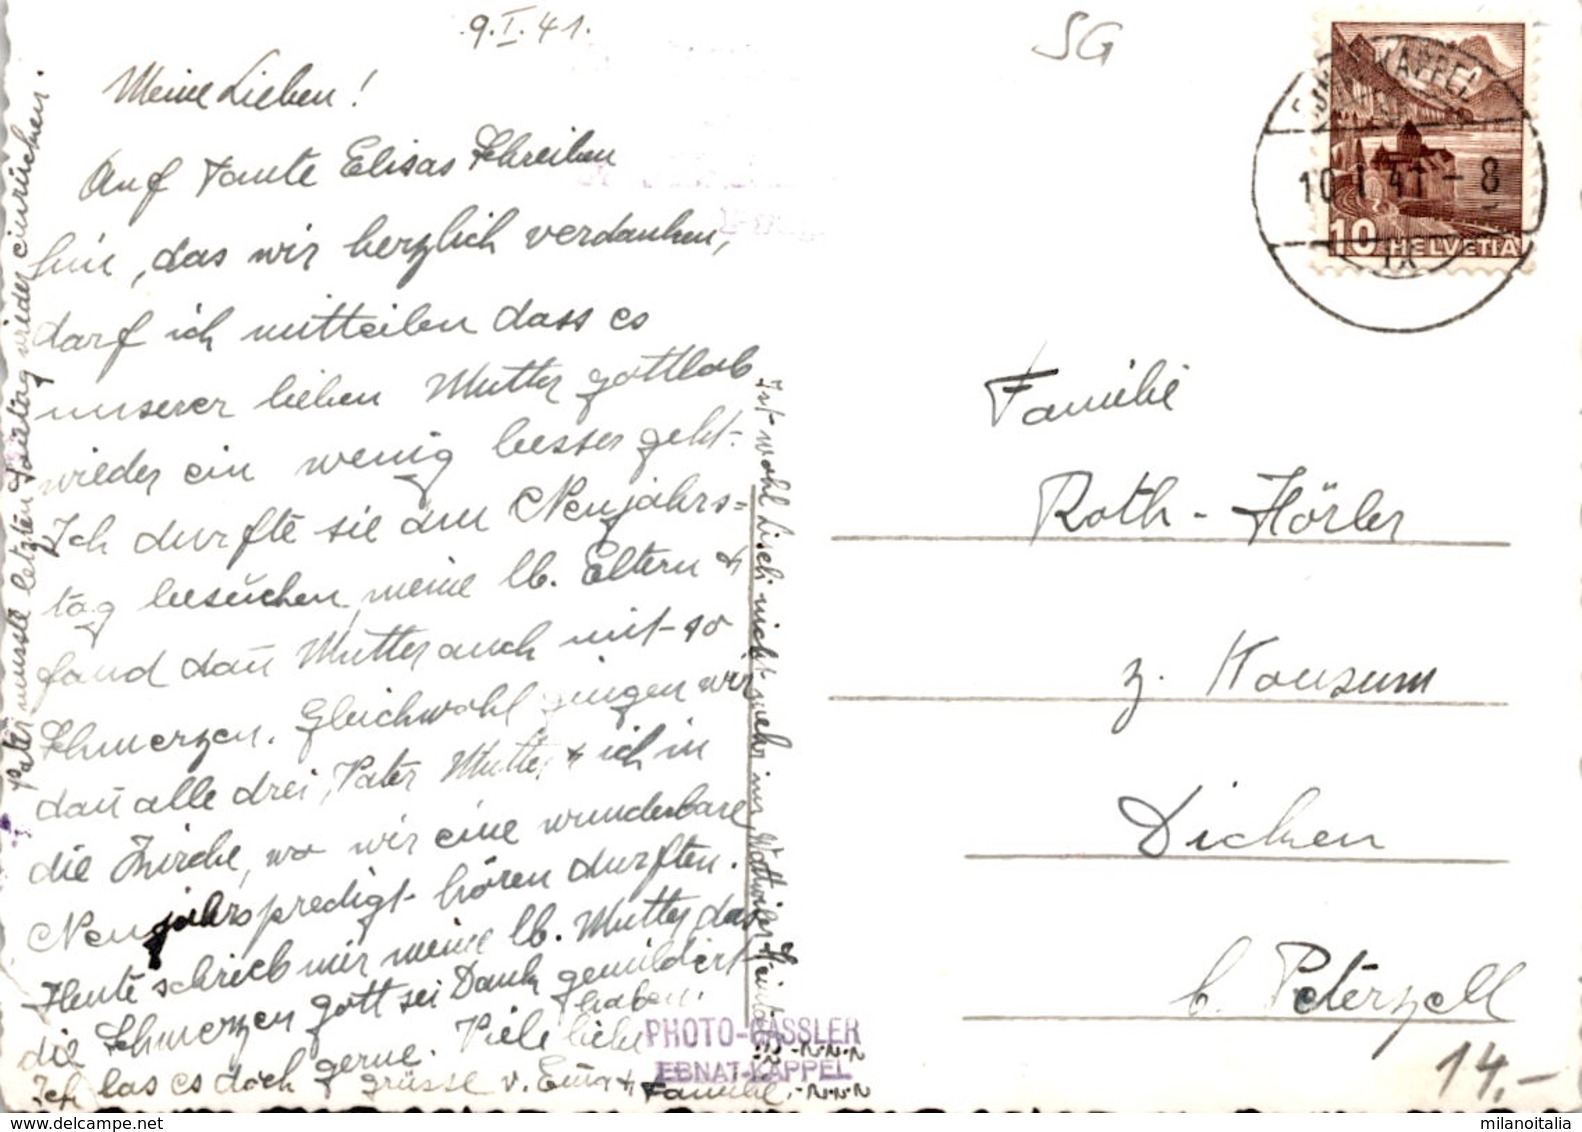 9.I.41.
SG
Meine Lieben!
Auf Tante Elisas Schreiben
hin, das wir herzlich verdanken,
darf ich mitteilen dass es
unserer lieben Mutter gottlob
wieder ein wenig besser geht.
Ich durfte sie am Neujahrs=
tag besuchen, meine lb. Eltern &
fand dañ Mutter auch mit so
Schmerzen. Gleichwohl gingen wir
dañ alle drei, Vater Mutter & ich in
die Kirche, wo wir eine wunderbare
Neujahrspredigt hören durften.
Heute schrieb mir meine lb. Mutter, dass
die Schmerzen gott sei Dank gemildert
haben.
Ich las es doch gerne. Viele liebe
Grüsse v. Ema & Familie.
Vater musste letzten Freitag wieder einrücken.
Ist wohl Liseli nicht mehr in Wattwil
PHOTO-GASSLER
EBNAT-KAPPEL
KAPPEL
10.I.41 - 8
IX
10 HELVETIA
Familie
Roth-Hörler
z. Konsum
Dicken
b. Peterzell
14.-
milanoitalia